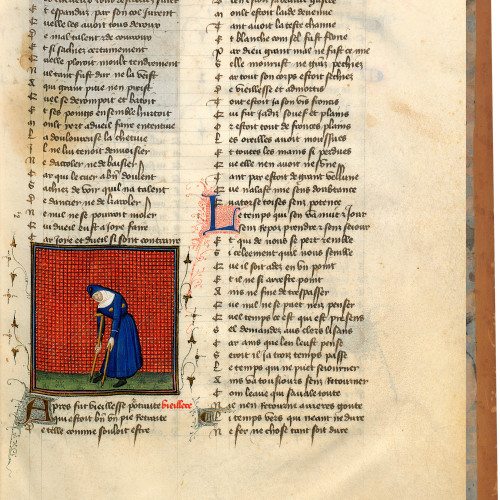 uelle les avoit tous derous
E mal talent et de couroux
E t si sachiez certainement
uelle ploroit moult tendrement
ul tant fust dur ne la veist
A qui grant pitie nen preist
uel se derompoit et batoit
E t ses poings ensemble hurtoit
M oult yert a dueil faire ententive
L a douloureuse la chetive
I l ne lui tenoit denvoisier
N e dacoler ne de baisier
C ar qui le cuer a bien doulent
S achiez de voir quil na talent
D e dancier ne de karoler
N e nul ne se pouroit moler
Q ui dueil eust a joye faire
C ar joye et dueil si sont contraire
Apres fut vieillesse portraite vieillece
Qui estoit bien un pie retraite
D e telle comme souloit estre
M oult estoit laide devenue
T ant avoit la teste chanue
E t blanche com sel fust florie
P ar dieu grant mal ne fust ce mie
S elle mourust ne grant pechiez
C ar tout son corps estoit sechiez
D e vieillesse et admortis
T out estoit ja son vis flortis
Q ui fut jadis souef et plains
O r estoit tout de fronces plains
L es oreilles avoit moussues
E t toutes les mains si perdues
Q uelle nen avoit
T ant par estoit de grant
Q ue nalast mie sens doubtance
toises sen potence
Le temps qui sen va nuit et jour
Sens repos prendre et sens sejour
E t qui de nous se part
S i celeement quil nous semble
Q ue il soit adez en un point
E t il ne si arreste point
A ins ne fine de trespasser
Q ue nul ne se puet nen penser
Q uel temps ce est qui est presens
S el demandez aux clers lisans
C ar ains que len leust pense
S eroit il ja trois temps passe
L e temps qui ne puet sejourner
A ins va tousjours sens retourner
C om leaue qui savale toute
N e nen retourne arrieres goute
L e temps vers qui neant ne dure
N e fer ne chose tant soit dure